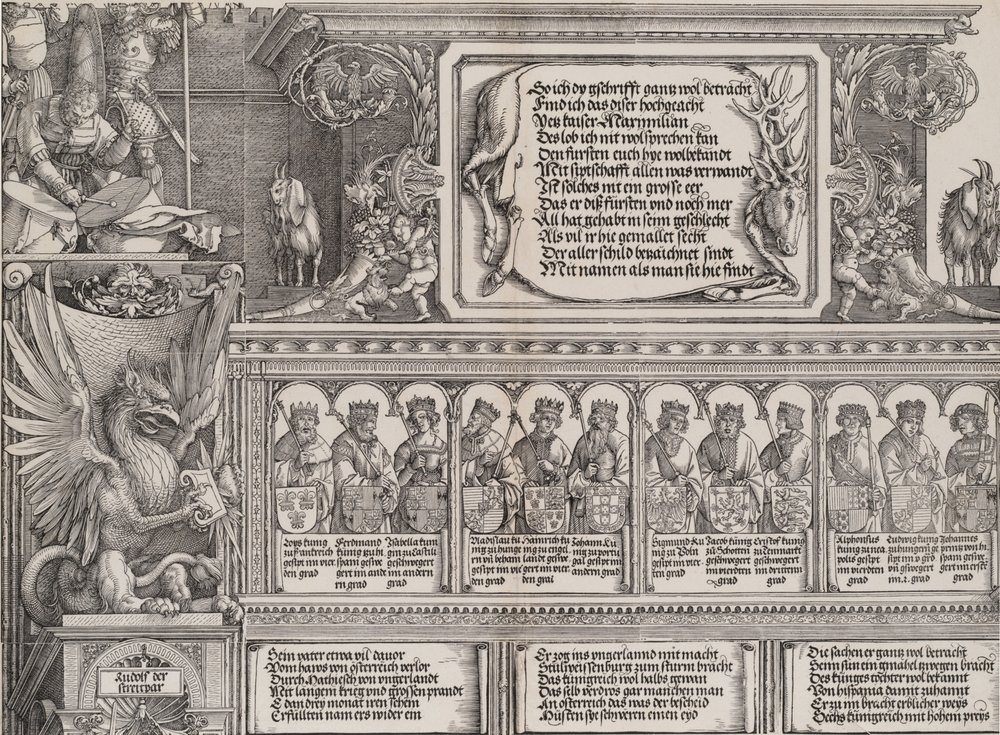 So ich dy gschrifft gantz wol betracht
Find ich das diser hochgeacht
Vetz kaiser Maximilian
Des lob ich nit wolsprechen kan
Den fursten euch hye wolbekandt
Mit siptschafft allen was verwandt
Ist solches nit ein grosse eer
Das er diß fürsten vnd noch mer
All hat gehabt in seim geschlecht
Als vil ir hie gemallet secht
Der aller schild bezaichnet sindt
Mit namen als man sie hie findt
Loys kung
zu frankreich
gesipt im vier
den grad
Ferdinand
kunig zu hi
spani geswe
gert im andern
grad
Isabella kuni
gin zu Castili
geschwegert
im andern
grad
Vladislau ku
nig zu hunge
rn vn behaim
gesipt im vier
den grad
Hainrich ku
nig zu engel
landt geswe
gert im vier
den grad
Johann ku
nig zu portu
gal gesipt im
andern grad
Sigmund ku
nig zu Poln
gesipt im vier
ten grad
Jacob künig
zu Schotten
geschwegert
im vierdten
grad
Cristof kunig
zu Tennmarkt
geschwegert
im vierten
grad
Alphonsus
kunig zu nea
polis gesipt
im vierdten
grad
Ludwig kunig
zu hungern ge
sipt im v grad
vn gswegert
im .2. grad
Johannes
printz von hi
spani geswe
gert im ersten
grad
Rudolf der
streitpar
Sein vater etwa vil dauor
Vom haws von österreich verlor
Durch Mathiesch von vngerlandt
Mit langem krieg vnd grossen prandt
E dan drey monat iren schein
Erfüllten nam ers wider ein
Er zog ins vngerlannd mit macht
Stulweissenburg zum sturm bracht
Das kunigreich wol halbs gewan
Das selb verdros gar manchen man
An österreich das was der bescheid
Musten sye schweren einen eyd
Die sachen er gantz wol betracht
Seim sun ein gmahel zwegen bracht
Des künges töchter wol bekannt
Von hispania damit zuhannt
Er zu im bracht erblicher weys
Sechs kunigreich mit hohem preys